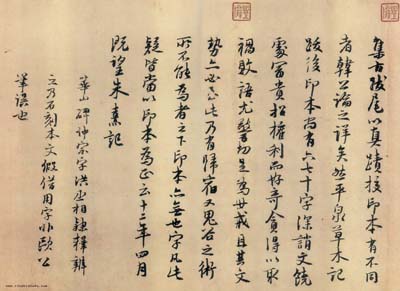 集古跋尾以真蹟校印本有不同
者韓公論之詳矣然平泉草木記
跋後印本尚有六七十字深誚文饒
處富貴招權利而好奇貪得以取
禍敗語尤警切足為世戒且其文
勢亦必至此乃有歸宿又鬼谷之術
所不能為者之下印本亦無也字凡此
疑皆當以印本為正云十二年四月
既望朱熹記
華山碑仲宗字洪丞相隸釋辨
之乃石刻本文假借用字非歐公
筆誤也